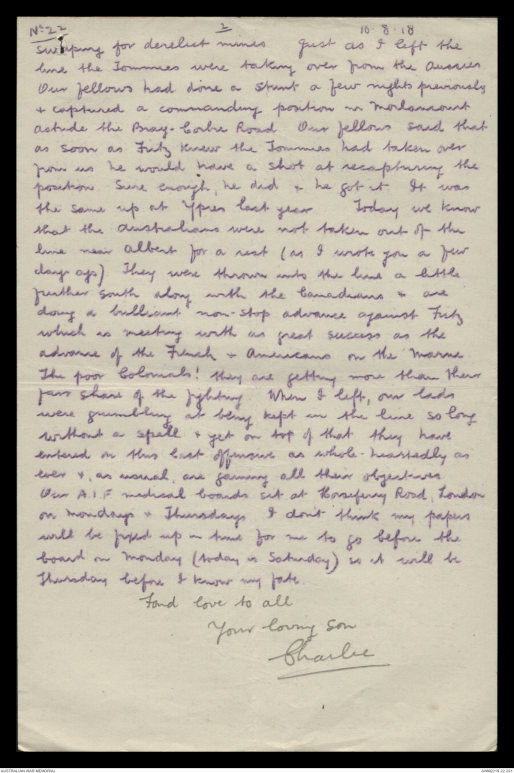 No 22 2 10-8-18
sweeping for derelict mines Just as I left the
line the Tommies were taking over from the Aussies
Our fellows had done a stunt a few nights previously
& captured a commanding position nr Morlancourt
astride the Bray-Corbie Road Our fellows said that
as soon as Fritz knew the Tommies had taken over
from us he would have a shot at recapturing the
position Sure enough, he did & he got it It was
the same up at Ypres last year Today we know
that the Australians were not taken out of the
line near Albert for a rest (as I wrote you a few
days ago) They were thrown into the line a little
further south along with the Canadians & are
doing a brilliant non-stop advance against Fritz
which is meeting with as great success as the
advance of the French & Americans on the Marne
The poor Colonials! they are getting more than their
fair share of the fighting When I left, our lads
were grumbling at being kept in the line so long
without a spell & yet on top of that they have
entered on this last offensive as whole-heartedly as
ever &, as usual, are gaining all their objectives
Our A.I.F medical boards sit at Horseferry Road, London
on Mondays & Thursdays I don't think my papers
will be fixed up in time for me to go before the
board on Monday (today is Saturday) so it will be
Thursday before I know my fate.
Fond love to all
Your loving son
Charlie
AUSTRALIAN WAR MEMORIAL